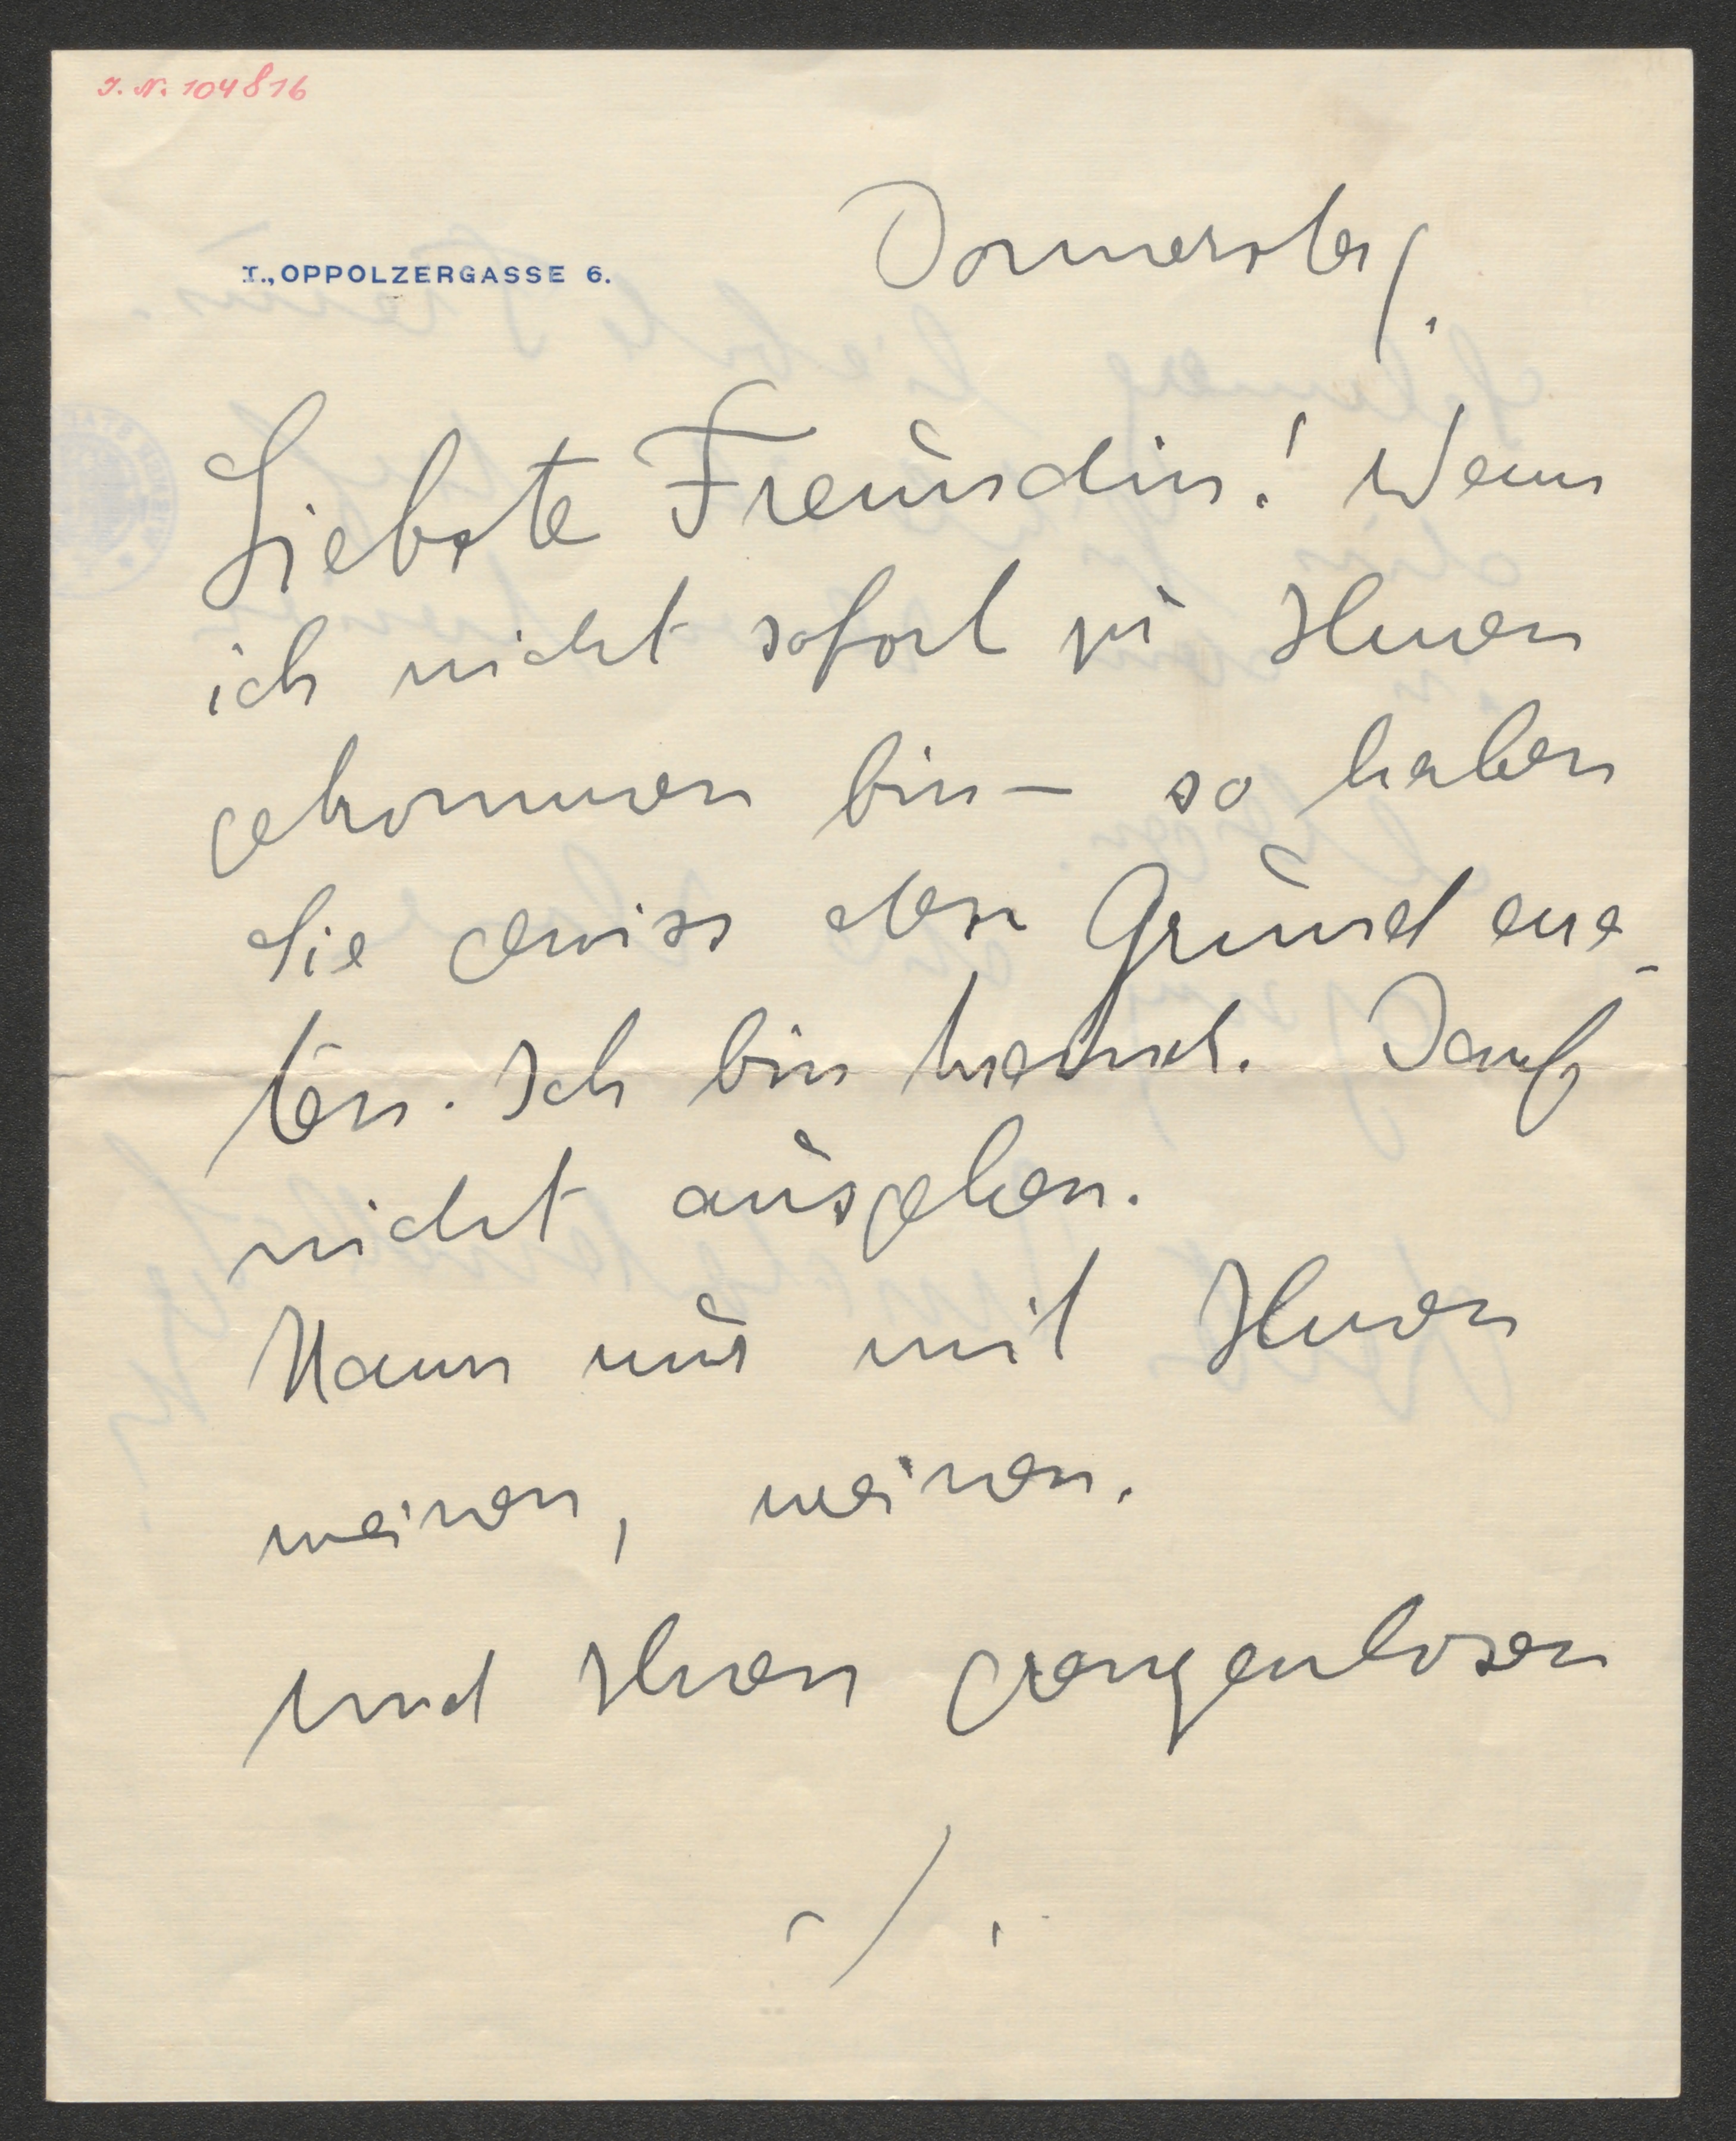 J. N. 104816
I., OPPOLZERGASSE 6.
Donnerstag.
Liebste Freundin! Wenn
ich nicht sofort zu Ihnen
gekommen bin – so haben
Sie gewiss den Grund erra-
ten. Ich bin krank. Darf
nicht ausgehen.
Kann nur mit Ihnen
weinen, weinen.
und Ihren grenzenlosen
./.